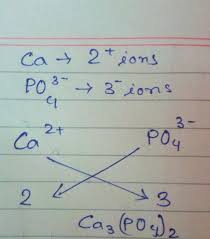 Ca → 2⁺ ions
PO₄³⁻ → 3⁻ ions
Ca²⁺ PO₄³⁻
2 3
Ca₃(PO₄)₂